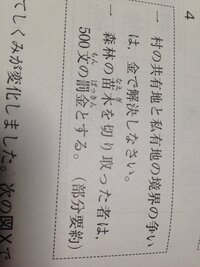 4
一 村の共有地と私有地の境界の争い
は、金で解決しなさい。
なえぎ
一 森林の苗木を切り取った者は、
もん ばっきん
500文の罰金とする。(部分要約)
てしくみが変化しました。次の図Xで